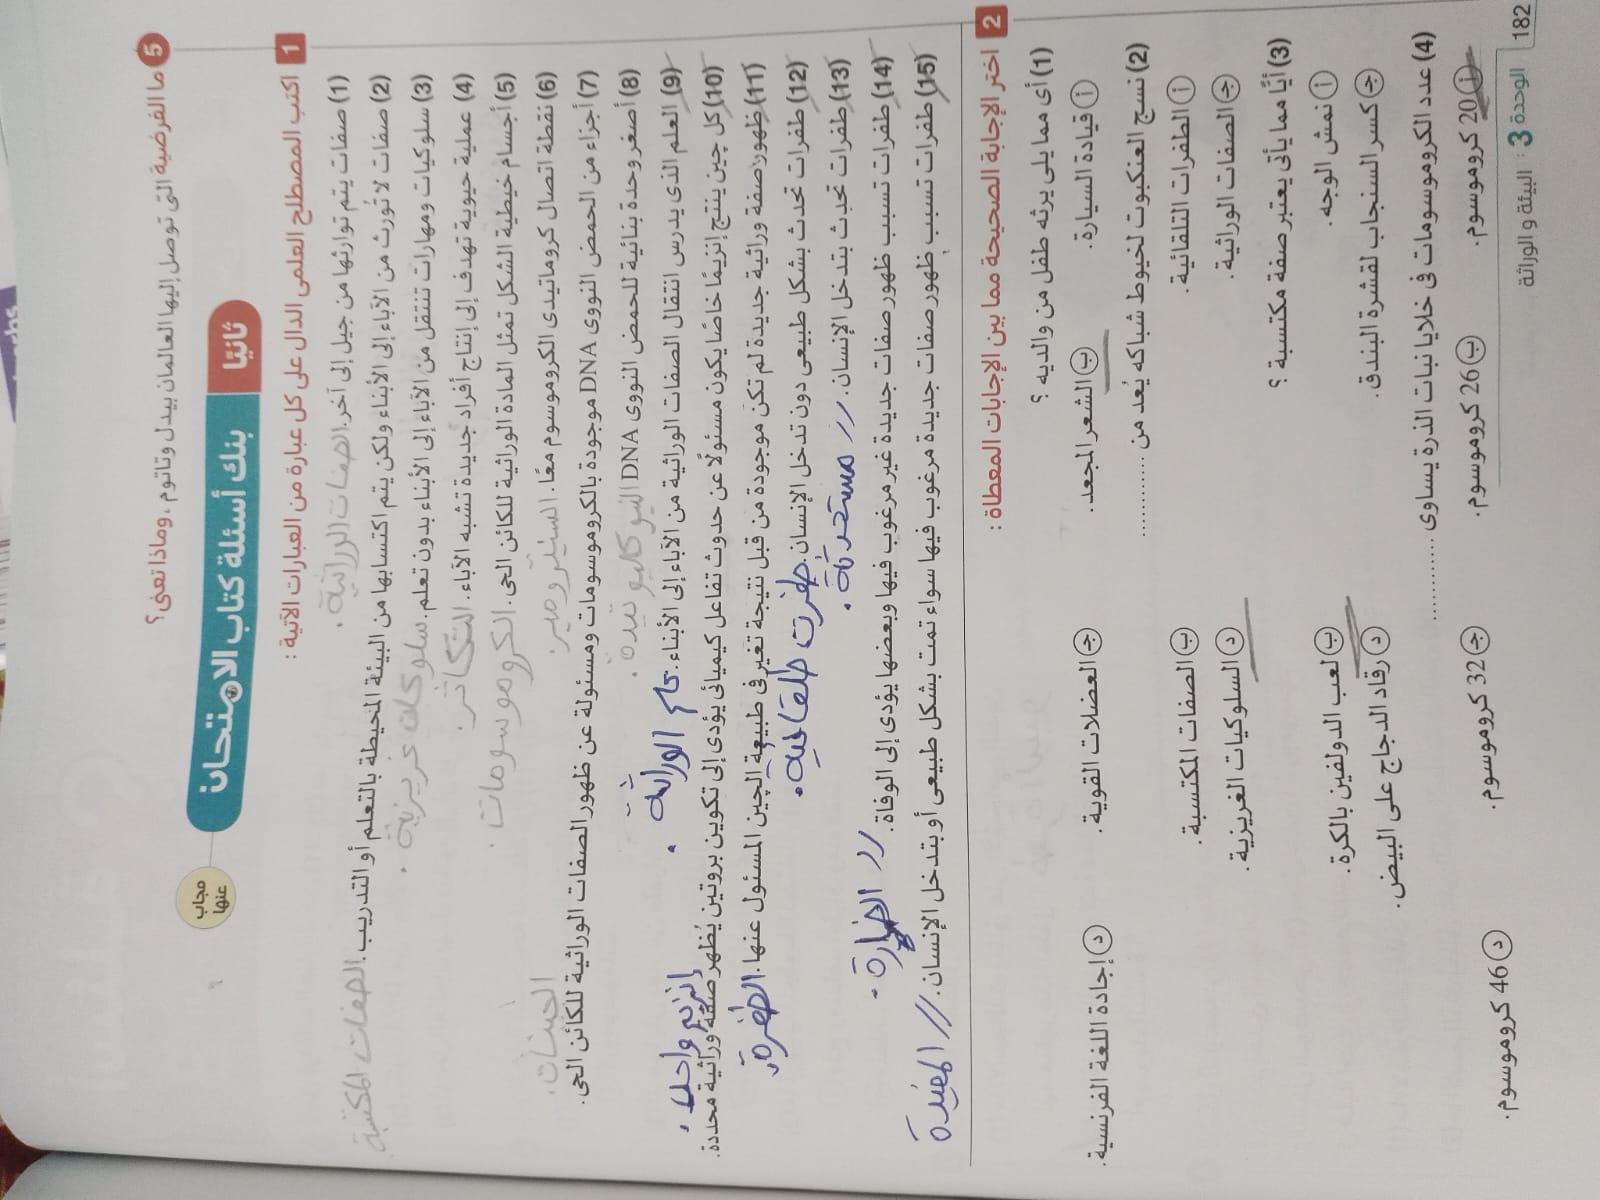 5 ما الفرضية التى توصل إليها العالمان بيدل وتاتوم ، وماذا تعنى ؟
ثانيًا بنك أسئلة كتاب الامتحان
مجاب عنها
1 اكتب المصطلح العلمى الدال على كل عبارة من العبارات الآتية :
(1) صفات يتم توارثها من جيل إلى آخر. الصفات الوراثية.
(2) صفات لا تُورث من الآباء إلى الأبناء ولكن يتم اكتسابها من البيئة المحيطة بالتعلم أو التدريب. الصفات المكتسبة
(3) سلوكيات ومهارات تنتقل من الآباء إلى الأبناء بدون تعلم. سلوكيات غريزية.
(4) عملية حيوية تهدف إلى إنتاج أفراد جديدة تشبه الآباء. التكاثر.
(5) أجسام خيطية الشكل تمثل المادة الوراثية للكائن الحى. الكروموسومات.
(6) نقطة اتصال كروماتيدى الكروموسوم معًا. السنترومير.
(7) أجزاء من الحمض النووى DNA موجودة بالكروموسومات ومسئولة عن ظهور الصفات الوراثية للكائن الحى. الجينات.
(8) أصغر وحدة بنائية للحمض النووى DNA النيوكليوتيدة.
(9) العلم الذى يدرس انتقال الصفات الوراثية من الآباء إلى الأبناء. علم الوراثة.
(10) كل چين ينتج إنزيمًا خاصًا يكون مسئولًا عن حدوث تفاعل كيميائى يؤدى إلى تكوين بروتين يُظهر صفة وراثية محددة. إنزيم واحد.
(11) ظهور صفة وراثية جديدة لم تكن موجودة من قبل نتيجة تغير فى طبيعة الچين المسئول عنها. الطفرة.
(12) طفرات تحدث بشكل طبيعى دون تدخل الإنسان. طفرت تلقائية.
(13) طفرات تحدث بتدخل الإنسان. // مستحدثة.
(14) طفرات تسبب ظهور صفات جديدة غير مرغوب فيها وبعضها يؤدى إلى الوفاة. // الضارة.
(15) طفرات تسبب ظهور صفات جديدة مرغوب فيها سواء تمت بشكل طبيعى أو بتدخل الإنسان. // المفيدة
2 اختر الإجابة الصحيحة مما بين الإجابات المعطاة :
(1) أى مما يلى يرثه طفل من والديه ؟
أ قيادة السيارة. ب الشعر المجعد. جـ العضلات القوية. د إجادة اللغة الفرنسية.
(2) نسج العنكبوت لخيوط شباكه يُعد من ............
أ الطفرات التلقائية. ب الصفات المكتسبة.
جـ الصفات الوراثية. د السلوكيات الغريزية.
(3) أيًا مما يأتى يعتبر صفة مكتسبة ؟
أ نمش الوجه. ب لعب الدولفين بالكرة.
جـ كسر السنجاب لقشرة البندق. د رقاد الدجاج على البيض.
(4) عدد الكروموسومات فى خلايا نبات الذرة يساوى ............
أ 20 كروموسوم. ب 26 كروموسوم. جـ 32 كروموسوم. د 46 كروموسوم.
182 الوحدة 3 : البيئة و الوراثة